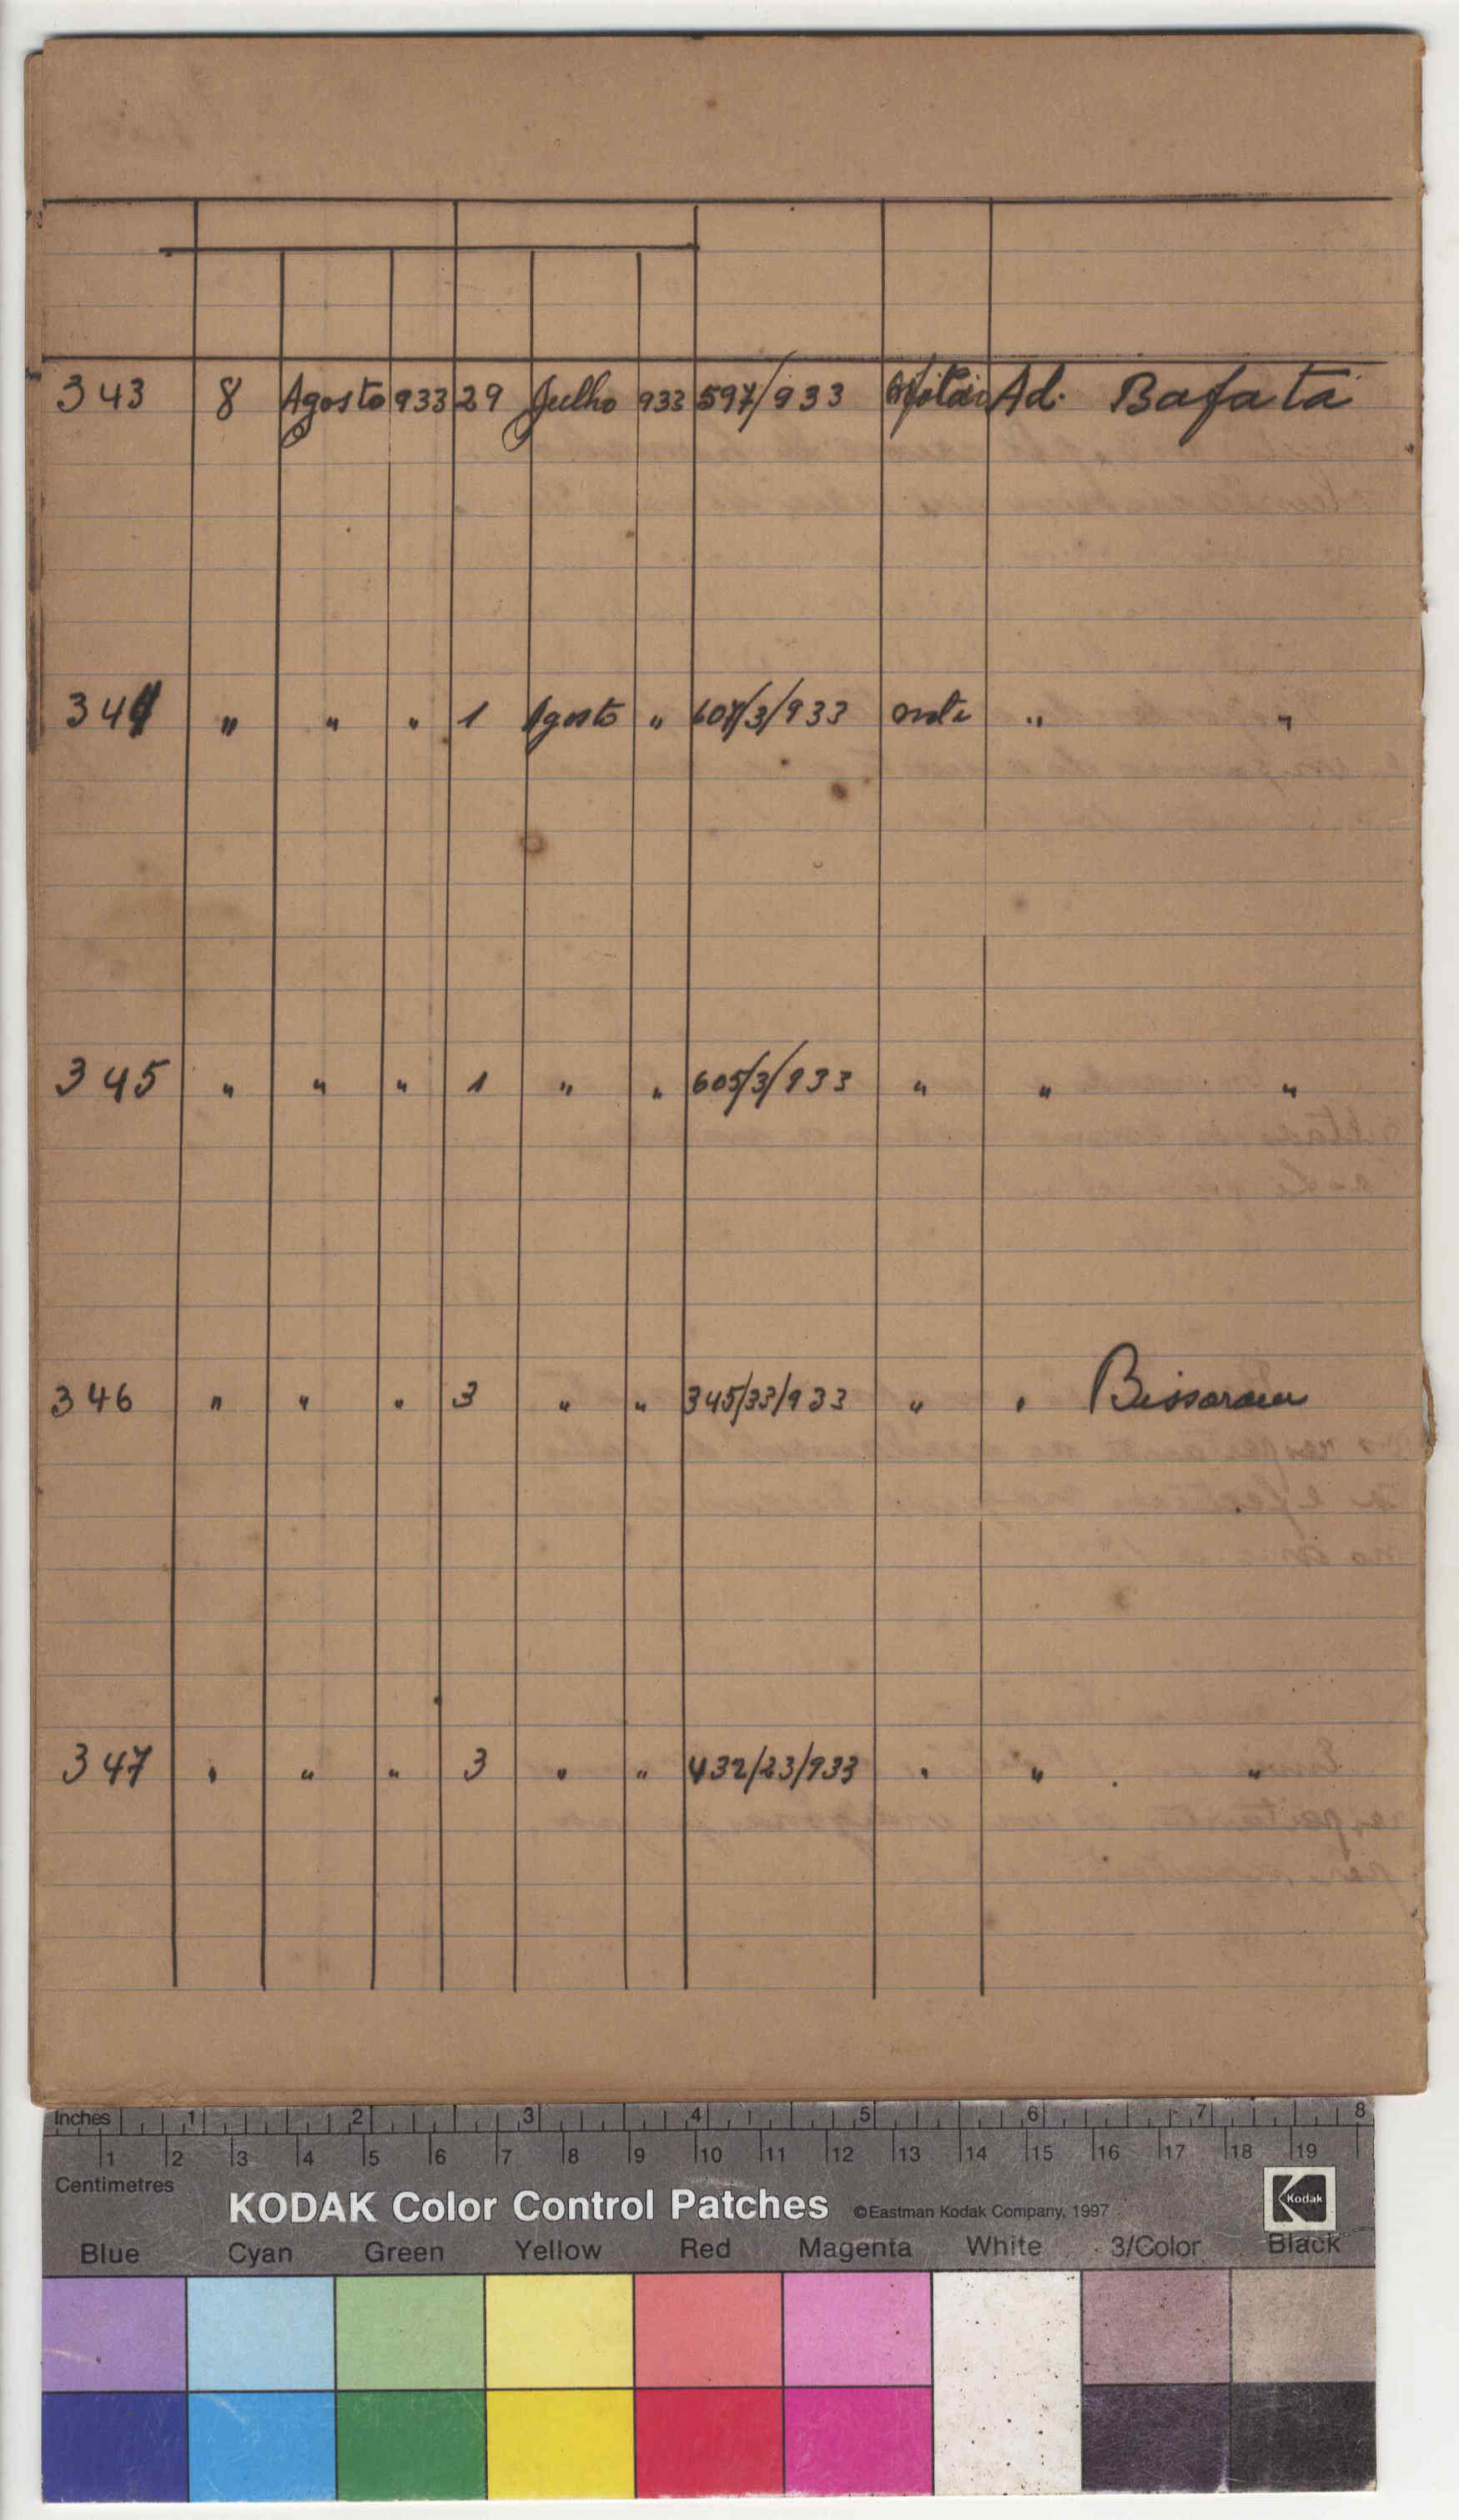 343 8 Agosto 933 29 Julho 933 597/933 Ad. Bafatá
344 " " " 1 Agosto " 607/3/933 nota " "
345 " " " 1 " " 605/3/933 " " "
346 " " " 3 " " 345/33/933 " " Bissorau
347 " " " 3 " " 432/23/933 " " "
Inches 1 2 3 4 5 6 7 8
1 2 3 4 5 6 7 8 9 10 11 12 13 14 15 16 17 18 19
Centimetres
KODAK Color Control Patches ©Eastman Kodak Company, 1997 Kodak
Blue Cyan Green Yellow Red Magenta White 3/Color Black